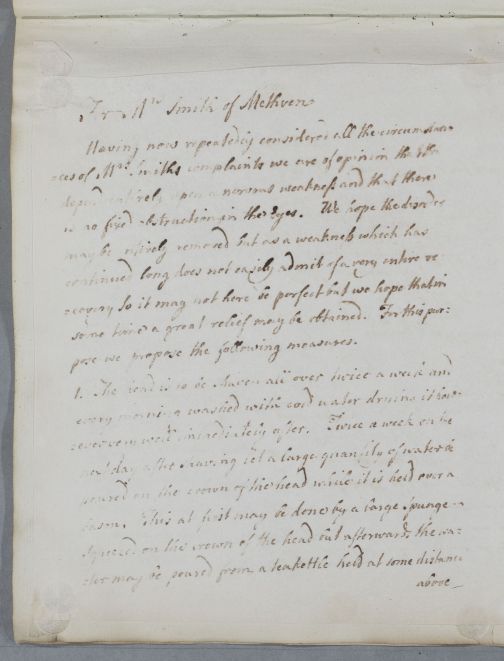 For Mrs Smith of Methven
Having now repeatedly considered all the circumstan-
ces of Mrs Smiths complaints we are of opinion that they
depend entirely upon a nervous weakness and that there
is no fixed obstruction in the Eyes. We hope the disorder
may be entirely removed but as a weakness which has
continued long does not easily admit of a very entire re-
covery so it may not here be perfect but we hope that in
some time a great relief may be obtained. For this pur-
pose we propose the following measures.
1. The head is to be shaven all over twice a week and
every morning washed with cold water drying it how-
ever very well immediately after. Twice a week on the
next day after shaving let a large quantity of water be
poured on the crown of the head while it is held over a
bason. This at first may be done by a large spunge
squeezed on the crown of the head but afterwards the wa-
ter may be poured from a teakettle held at some distance
above